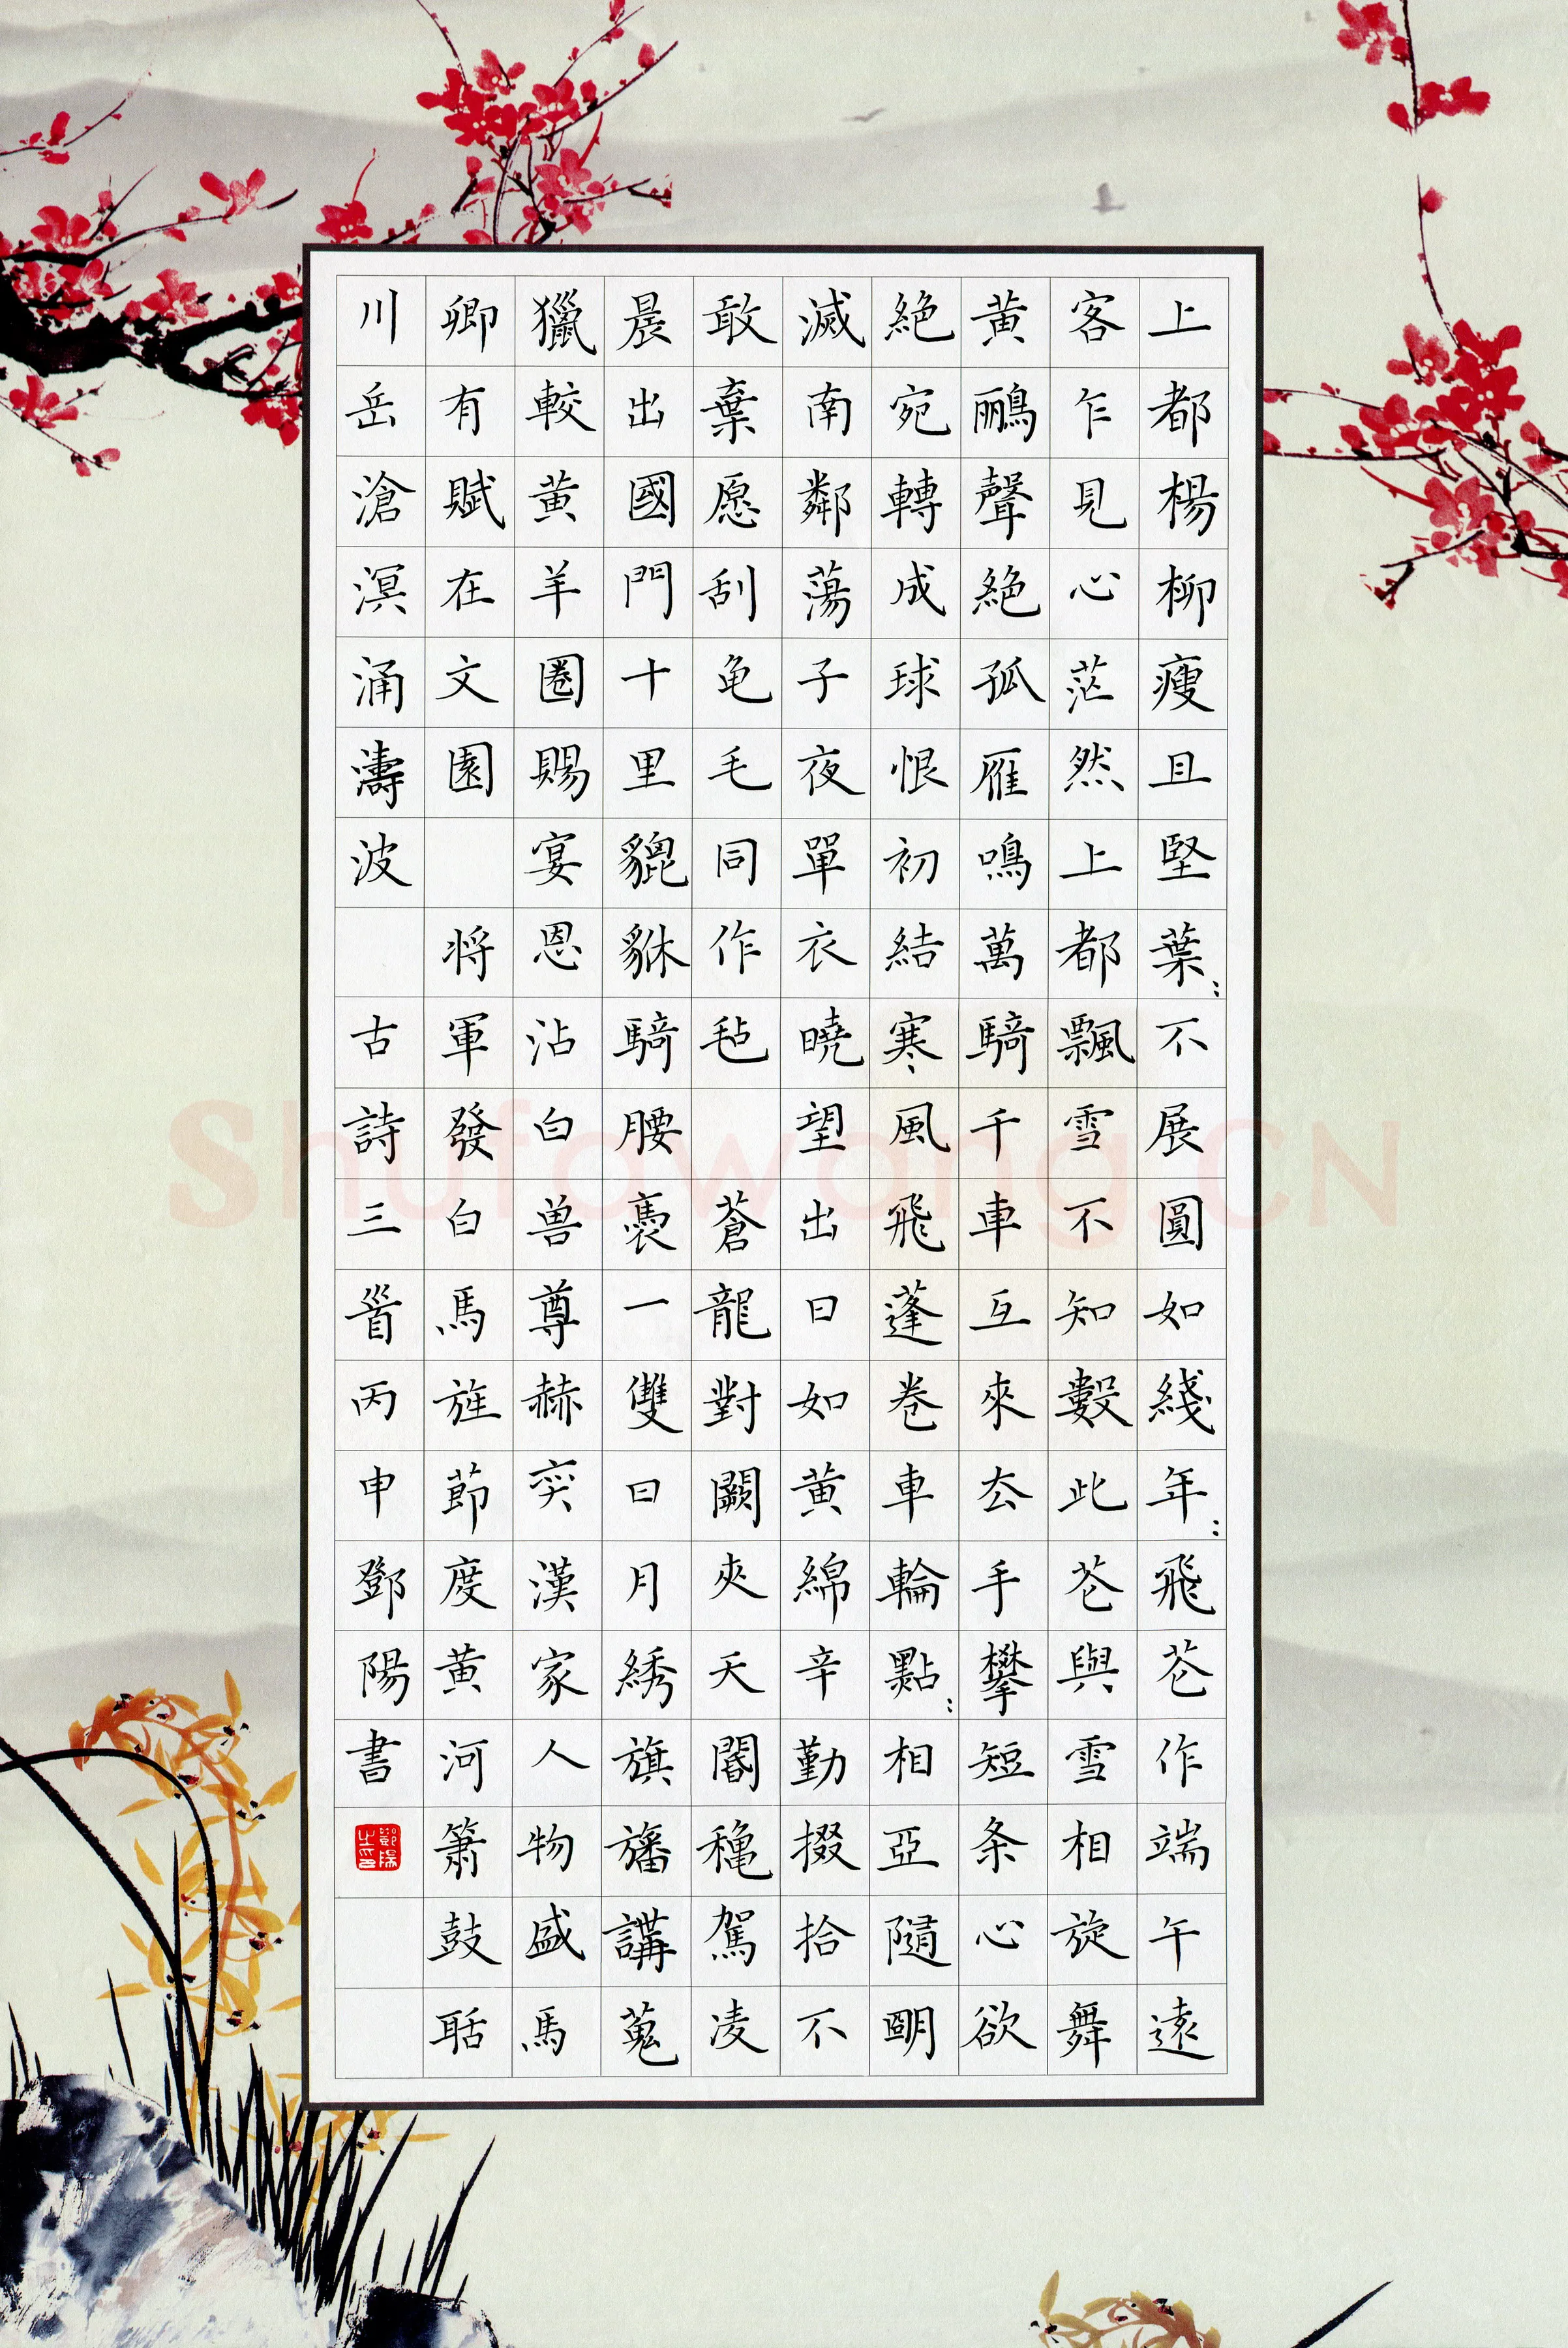 上都楊柳瘦且堅葉:不展圓如綫年:飛芲作端午遠
客乍見心茫然上都飄雪不知數此芲與雪相旋舞
黄鸝聲絕孤雁鳴萬騎千車互來厺手攀短条心欲
絕宛轉成球恨初結寒風飛蓬卷車輪點:相亞隨明
滅南鄰蕩子夜單衣曉望出日如黄綿辛勤掇拾不
敢棄愿刮龟毛同作毡 蒼龍對闕夾天閽穐駕凌
晨出國門十里貔貅騎腰褭一雙日月綉旗旛講蒐
獵較黄羊圈賜宴恩沾白兽尊赫奕漢家人物盛馬
卿有賦在文園 将軍發白馬旌節度黄河簫鼓聒
川岳滄溟涌濤波 古詩三首丙申鄧陽書
鄧陽之印
Shufawang.CN